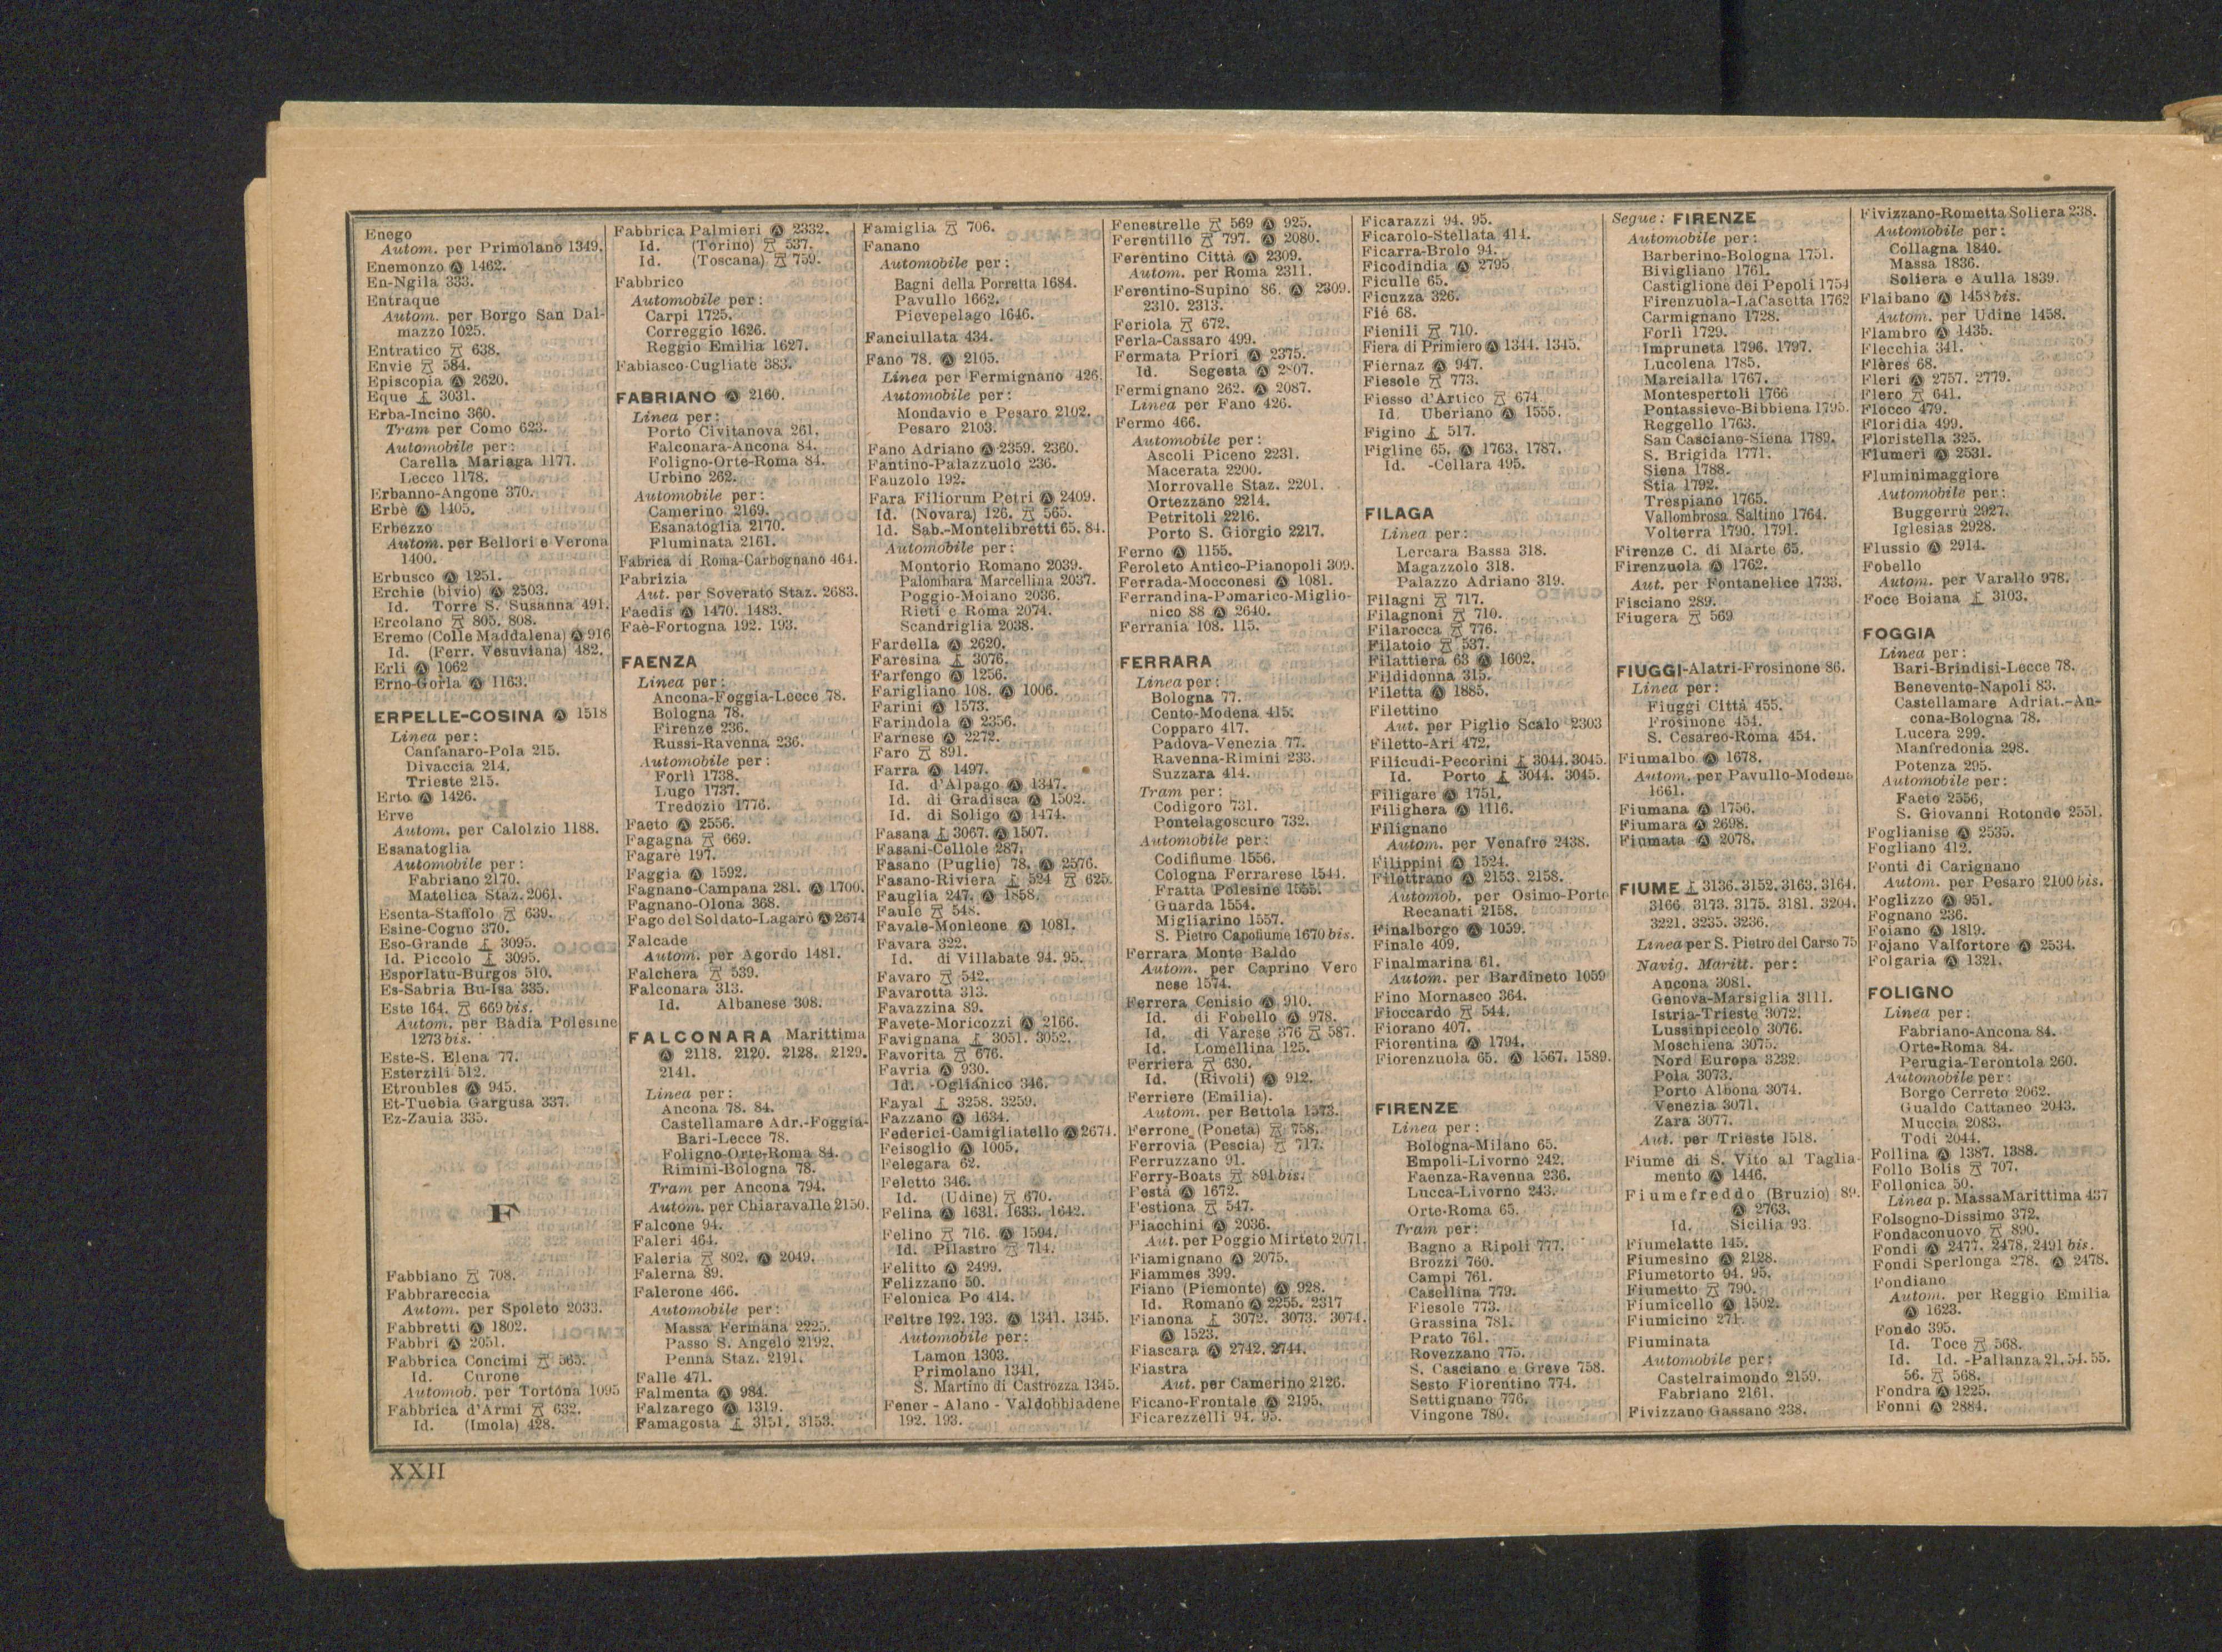 Enego
Autom. per Primolano 1349.
Enemonzo Ⓐ 1462.
En-Ngila 333.
Entraque
Autom. per Borgo San Dal-
mazzo 1025.
Entratico 638.
Envie 584.
Episcopia Ⓐ 2620.
Eque 3031.
Erba-Incino 360.
Tram per Como 623.
Automobile per:
Carella Mariaga 1177.
Lecco 1178.
Erbanno-Angone 370.
Erbè Ⓐ 1405.
Erbezzo
Autom. per Bellori e Verona
1400.
Erbusco Ⓐ 1251.
Erchie (bivio) Ⓐ 2503.
Id. Torre S. Susanna 491.
Ercolano 805. 808.
Eremo (Colle Maddalena) Ⓐ 916
Id. (Ferr. Vesuviana) 482.
Erli Ⓐ 1062
Erno-Gorla Ⓐ 1163.
ERPELLE-COSINA Ⓐ 1518
Linea per:
Canfanaro-Pola 215.
Divaccia 214.
Trieste 215.
Erto Ⓐ 1426.
Erve
Autom. per Calolzio 1188.
Esanatoglia
Automobile per:
Fabriano 2170.
Matelica Staz. 2061.
Esenta-Staffolo 639.
Esine-Cogno 370.
Eso-Grande 3095.
Id. Piccolo 3095.
Esporlatu-Burgos 510.
Es-Sabria Bu-Isa 335.
Este 164. 669 bis.
Autom. per Badia Polesine
1273 bis.
Este-S. Elena 77.
Esterzili 512.
Etroubles Ⓐ 945.
Et-Tuebia Gargusa 337.
Ez-Zauia 335.
F
Fabbiano 708.
Fabbrareccia
Autom. per Spoleto 2033.
Fabbretti Ⓐ 1802.
Fabbri Ⓐ 2051.
Fabbrica Concimi 565.
Id. Curone
Automob. per Tortona 1095
Fabbrica d'Armi 632.
Id. (Imola) 428.
Fabbrica Palmieri Ⓐ 2332.
Id. (Torino) 537.
Id. (Toscana) 759.
Fabbrico
Automobile per:
Carpi 1725.
Correggio 1626.
Reggio Emilia 1627.
Fabiasco-Cugliate 383.
FABRIANO Ⓐ 2160.
Linea per:
Porto Civitanova 261.
Falconara-Ancona 84.
Foligno-Orte-Roma 84.
Urbino 262.
Automobile per:
Camerino 2169.
Esanatoglia 2170.
Fluminata 2161.
Fabrica di Roma-Carbognano 464.
Fabrizia
Aut. per Soverato Staz. 2683.
Faedis Ⓐ 1470. 1483.
Faè-Fortogna 192. 193.
FAENZA
Linea per:
Ancona-Foggia-Lecce 78.
Bologna 78.
Firenze 236.
Russi-Ravenna 236.
Automobile per:
Forlì 1738.
Lugo 1737.
Tredozio 1776.
Faeto Ⓐ 2556.
Fagagna 669.
Fagarè 197.
Faggia Ⓐ 1592.
Fagnano-Campana 281. Ⓐ 1700.
Fagnano-Olona 368.
Fago del Soldato-Lagarò Ⓐ 2674
Falcade
Autom. per Agordo 1481.
Falchera 539.
Falconara 313.
Id. Albanese 308.
FALCONARA Marittima
Ⓐ 2118. 2120. 2128. 2129.
2141.
Linea per:
Ancona 78. 84.
Castellamare Adr.-Foggia-
Bari-Lecce 78.
Foligno-Orte-Roma 84.
Rimini-Bologna 78.
Tram per Ancona 794.
Autom. per Chiaravalle 2150.
Falcone 94.
Faleri 464.
Faleria 802. Ⓐ 2049.
Falerna 89.
Falerone 466.
Automobile per:
Massa Fermana 2225.
Passo S. Angelo 2192.
Penna Staz. 2191.
Falle 471.
Falmenta Ⓐ 984.
Falzarego Ⓐ 1319.
Famagosta 3151. 3153.
Famiglia 706.
Fanano
Automobile per:
Bagni della Porretta 1684.
Pavullo 1662.
Pievepelago 1646.
Fanciullata 434.
Fano 78. Ⓐ 2105.
Linea per Fermignano 426.
Automobile per:
Mondavio e Pesaro 2102.
Pesaro 2103.
Fano Adriano Ⓐ 2359. 2360.
Fantino-Palazzuolo 236.
Fauzolo 192.
Fara Filiorum Petri Ⓐ 2409.
Id. (Novara) 126. 565.
Id. Sab.-Montelibretti 65. 84.
Automobile per:
Montorio Romano 2039.
Palombara Marcellina 2037.
Poggio-Moiano 2036.
Rieti e Roma 2074.
Scandriglia 2038.
Fardella Ⓐ 2620.
Faresina 3076.
Farfengo Ⓐ 1256.
Farigliano 108. Ⓐ 1006.
Farini Ⓐ 1573.
Farindola Ⓐ 2356.
Farnese Ⓐ 2272.
Faro 891.
Farra Ⓐ 1497.
Id. d'Alpago Ⓐ 1347.
Id. di Gradisca Ⓐ 1502.
Id. di Soligo Ⓐ 1474.
Fasana 3067. Ⓐ 1507.
Fasani-Cellole 287.
Fasano (Puglie) 78. Ⓐ 2576.
Fasano-Riviera 524 625.
Fauglia 247. Ⓐ 1858.
Faule 548.
Favale-Monleone Ⓐ 1081.
Favara 322.
Id. di Villabate 94. 95.
Favaro 542.
Favarotta 313.
Favazzina 89.
Favete-Moricozzi Ⓐ 2166.
Favignana 3051. 3052.
Favorita 676.
Favria Ⓐ 930.
Id. -Oglianico 346.
Fayal 3258. 3259.
Fazzano Ⓐ 1634.
Federici-Camigliatello Ⓐ 2674.
Feisoglio Ⓐ 1005.
Felegara 62.
Feletto 346.
Id. (Udine) 670.
Felina Ⓐ 1631. 1633. 1642.
Felino 716. Ⓐ 1594.
Id. Pilastro 714.
Felitto Ⓐ 2499.
Felizzano 50.
Felonica Po 414.
Feltre 192. 193. Ⓐ 1341. 1345.
Automobile per:
Lamon 1303.
Primolano 1341.
S. Martino di Castrozza 1345.
Fener - Alano - Valdobbiadene
192. 193.
Fenestrelle 569 Ⓐ 925.
Ferentillo 797. Ⓐ 2080.
Ferentino Città Ⓐ 2309.
Autom. per Roma 2311.
Ferentino-Supino 86. Ⓐ 2309.
2310. 2313.
Feriola 672.
Ferla-Cassaro 499.
Fermata Priori Ⓐ 2375.
Id. Segesta Ⓐ 2807.
Fermignano 262. Ⓐ 2087.
Linea per Fano 426.
Fermo 466.
Automobile per:
Ascoli Piceno 2231.
Macerata 2200.
Morrovalle Staz. 2201.
Ortezzano 2214.
Petritoli 2216.
Porto S. Giorgio 2217.
Ferno Ⓐ 1155.
Feroleto Antico-Pianopoli 309.
Ferrada-Mocconesi Ⓐ 1081.
Ferrandina-Pomarico-Miglio-
nico 88 Ⓐ 2640.
Ferrania 108. 115.
FERRARA
Linea per:
Bologna 77.
Cento-Modena 415.
Copparo 417.
Padova-Venezia 77.
Ravenna-Rimini 233.
Suzzara 414.
Tram per:
Codigoro 731.
Pontelagoscuro 732.
Automobile per:
Codifiume 1556.
Cologna Ferrarese 1544.
Fratta Polesine 1555.
Guarda 1554.
Migliarino 1557.
S. Pietro Capofiume 1670 bis.
Ferrara Monte Baldo
Autom. per Caprino Vero
nese 1574.
Ferrera Cenisio Ⓐ 910.
Id. di Fobello Ⓐ 978.
Id. di Varese 376 587.
Id. Lomellina 125.
Ferriera 630.
Id. (Rivoli) Ⓐ 912.
Ferriere (Emilia).
Autom. per Bettola 1573.
Ferrone (Poneta) 758.
Ferrovia (Pescia) 717.
Ferruzzano 91.
Ferry-Boats 891 bis.
Festà Ⓐ 1672.
Festiona 547.
Fiacchini Ⓐ 2036.
Aut. per Poggio Mirteto 2071.
Fiamignano Ⓐ 2075.
Fiammes 399.
Fiano (Piemonte) Ⓐ 928.
Id. Romano Ⓐ 2255. 2317
Fianona 3072. 3073. 3074.
Ⓐ 1523.
Fiascara Ⓐ 2742. 2744.
Fiastra
Aut. per Camerino 2126.
Ficano-Frontale Ⓐ 2195.
Ficarezzelli 94. 95.
Ficarazzi 94. 95.
Ficarolo-Stellata 414.
Ficarra-Brolo 94.
Ficodindia Ⓐ 2795
Ficulle 65.
Ficuzza 326.
Fié 68.
Fienili 710.
Fiera di Primiero Ⓐ 1344. 1345.
Fiernaz Ⓐ 947.
Fiesole 773.
Fiesso d'Artico 674
Id. Uberiano Ⓐ 1555.
Figino 517.
Figline 65. Ⓐ 1763. 1787.
Id. -Cellara 495.
FILAGA
Linea per:
Lercara Bassa 318.
Magazzolo 318.
Palazzo Adriano 319.
Filagni 717.
Filagnoni 710.
Filarocca 776.
Filatoio 537.
Filattiera 63 Ⓐ 1602.
Fildidonna 315.
Filetta Ⓐ 1885.
Filettino
Aut. per Piglio Scalo 2303
Filetto-Ari 472.
Filicudi-Pecorini 3044. 3045.
Id. Porto 3044. 3045.
Filigare Ⓐ 1751.
Filighera Ⓐ 1116.
Filignano
Autom. per Venafro 2438.
Filippini Ⓐ 1524.
Filottrano Ⓐ 2153. 2158.
Automob. per Osimo-Porto
Recanati 2158.
Finalborgo Ⓐ 1059.
Finale 409.
Finalmarina 61.
Autom. per Bardineto 1059
Fino Mornasco 364.
Fioccardo 544.
Fiorano 407.
Fiorentina Ⓐ 1794.
Fiorenzuola 65. Ⓐ 1567. 1589.
FIRENZE
Linea per:
Bologna-Milano 65.
Empoli-Livorno 242.
Faenza-Ravenna 236.
Lucca-Livorno 243.
Orte-Roma 65.
Tram per:
Bagno a Ripoli 777.
Brozzi 760.
Campi 761.
Casellina 779.
Fiesole 773.
Grassina 781.
Prato 761.
Rovezzano 775.
S. Casciano e Greve 758.
Sesto Fiorentino 774.
Settignano 776.
Vingone 780.
Segue: FIRENZE
Automobile per:
Barberino-Bologna 1751.
Bivigliano 1761.
Castiglione dei Pepoli 1754
Firenzuola-La Casetta 1762
Carmignano 1728.
Forlì 1729.
Impruneta 1796. 1797.
Lucolena 1785.
Marcialla 1767.
Montespertoli 1766
Pontassieve-Bibbiena 1795.
Reggello 1763.
San Casciano-Siena 1789.
S. Brigida 1771.
Siena 1788.
Stia 1792.
Trespiano 1765.
Vallombrosa Saltino 1764.
Volterra 1790. 1791.
Firenze C. di Marte 65.
Firenzuola Ⓐ 1762.
Aut. per Fontanelice 1733.
Fisciano 289.
Fiugera 569
FIUGGI-Alatri-Frosinone 86.
Linea per:
Fiuggi Città 455.
Frosinone 454.
S. Cesareo-Roma 454.
Fiumalbo Ⓐ 1678.
Autom. per Pavullo-Modena
1661.
Fiumana Ⓐ 1756.
Fiumara Ⓐ 2698.
Fiumata Ⓐ 2078.
FIUME 3136. 3152. 3163. 3164.
3166. 3173. 3175. 3181. 3204.
3221. 3235. 3236.
Linea per S. Pietro del Carso 75
Navig. Maritt. per:
Ancona 3081.
Genova-Marsiglia 3111.
Istria-Trieste 3072.
Lussinpiccolo 3076.
Moschiena 3075.
Nord Europa 3232.
Pola 3073.
Porto Albona 3074.
Venezia 3071.
Zara 3077.
Aut. per Trieste 1518.
Fiume di S. Vito al Taglia-
mento Ⓐ 1446.
Fiumefreddo (Bruzio) 89.
Ⓐ 2763.
Id. Sicilia 93.
Fiumelatte 145.
Fiumesino Ⓐ 2128.
Fiumetorto 94. 95.
Fiumetto 790.
Fiumicello Ⓐ 1502.
Fiumicino 271.
Fiuminata
Automobile per:
Castelraimondo 2159.
Fabriano 2161.
Fivizzano Gassano 238.
Fivizzano-Rometta Soliera 238.
Automobile per:
Collagna 1840.
Massa 1836.
Soliera e Aulla 1839.
Flaibano Ⓐ 1458 bis.
Autom. per Udine 1458.
Flambro Ⓐ 1435.
Flecchia 341.
Flères 68.
Fleri Ⓐ 2757. 2779.
Flero 641.
Flocco 479.
Floridia 499.
Floristella 325.
Flumeri Ⓐ 2531.
Fluminimaggiore
Automobile per:
Buggerru 2927.
Iglesias 2928.
Flussio Ⓐ 2914.
Fobello
Autom. per Varallo 978.
Foce Boiana 3103.
FOGGIA
Linea per:
Bari-Brindisi-Lecce 78.
Benevento-Napoli 83.
Castellamare Adriat.-An-
cona-Bologna 78.
Lucera 299.
Manfredonia 298.
Potenza 295.
Automobile per:
Faeto 2556.
S. Giovanni Rotondo 2551.
Foglianise Ⓐ 2535.
Fogliano 412.
Fonti di Carignano
Autom. per Pesaro 2100 bis.
Foglizzo Ⓐ 951.
Fognano 236.
Foiano Ⓐ 1819.
Fojano Valfortore Ⓐ 2534.
Folgaria Ⓐ 1321.
FOLIGNO
Linea per:
Fabriano-Ancona 84.
Orte-Roma 84.
Perugia-Terontola 260.
Automobile per:
Borgo Cerreto 2062.
Gualdo Cattaneo 2043.
Muccia 2083.
Todi 2044.
Follina Ⓐ 1387. 1388.
Follo Bolis 707.
Follonica 50.
Linea p. Massa Marittima 437
Folsogno-Dissimo 372.
Fondaconuovo 890.
Fondi Ⓐ 2477. 2478. 2491 bis.
Fondi Sperlonga 278. Ⓐ 2478.
Fondiano
Autom. per Reggio Emilia
Ⓐ 1623.
Fondo 395.
Id. Toce 568.
Id. Id. -Pallanza 21. 54. 55.
56. 568.
Fondra Ⓐ 1225.
Fonni Ⓐ 2884.
XXII